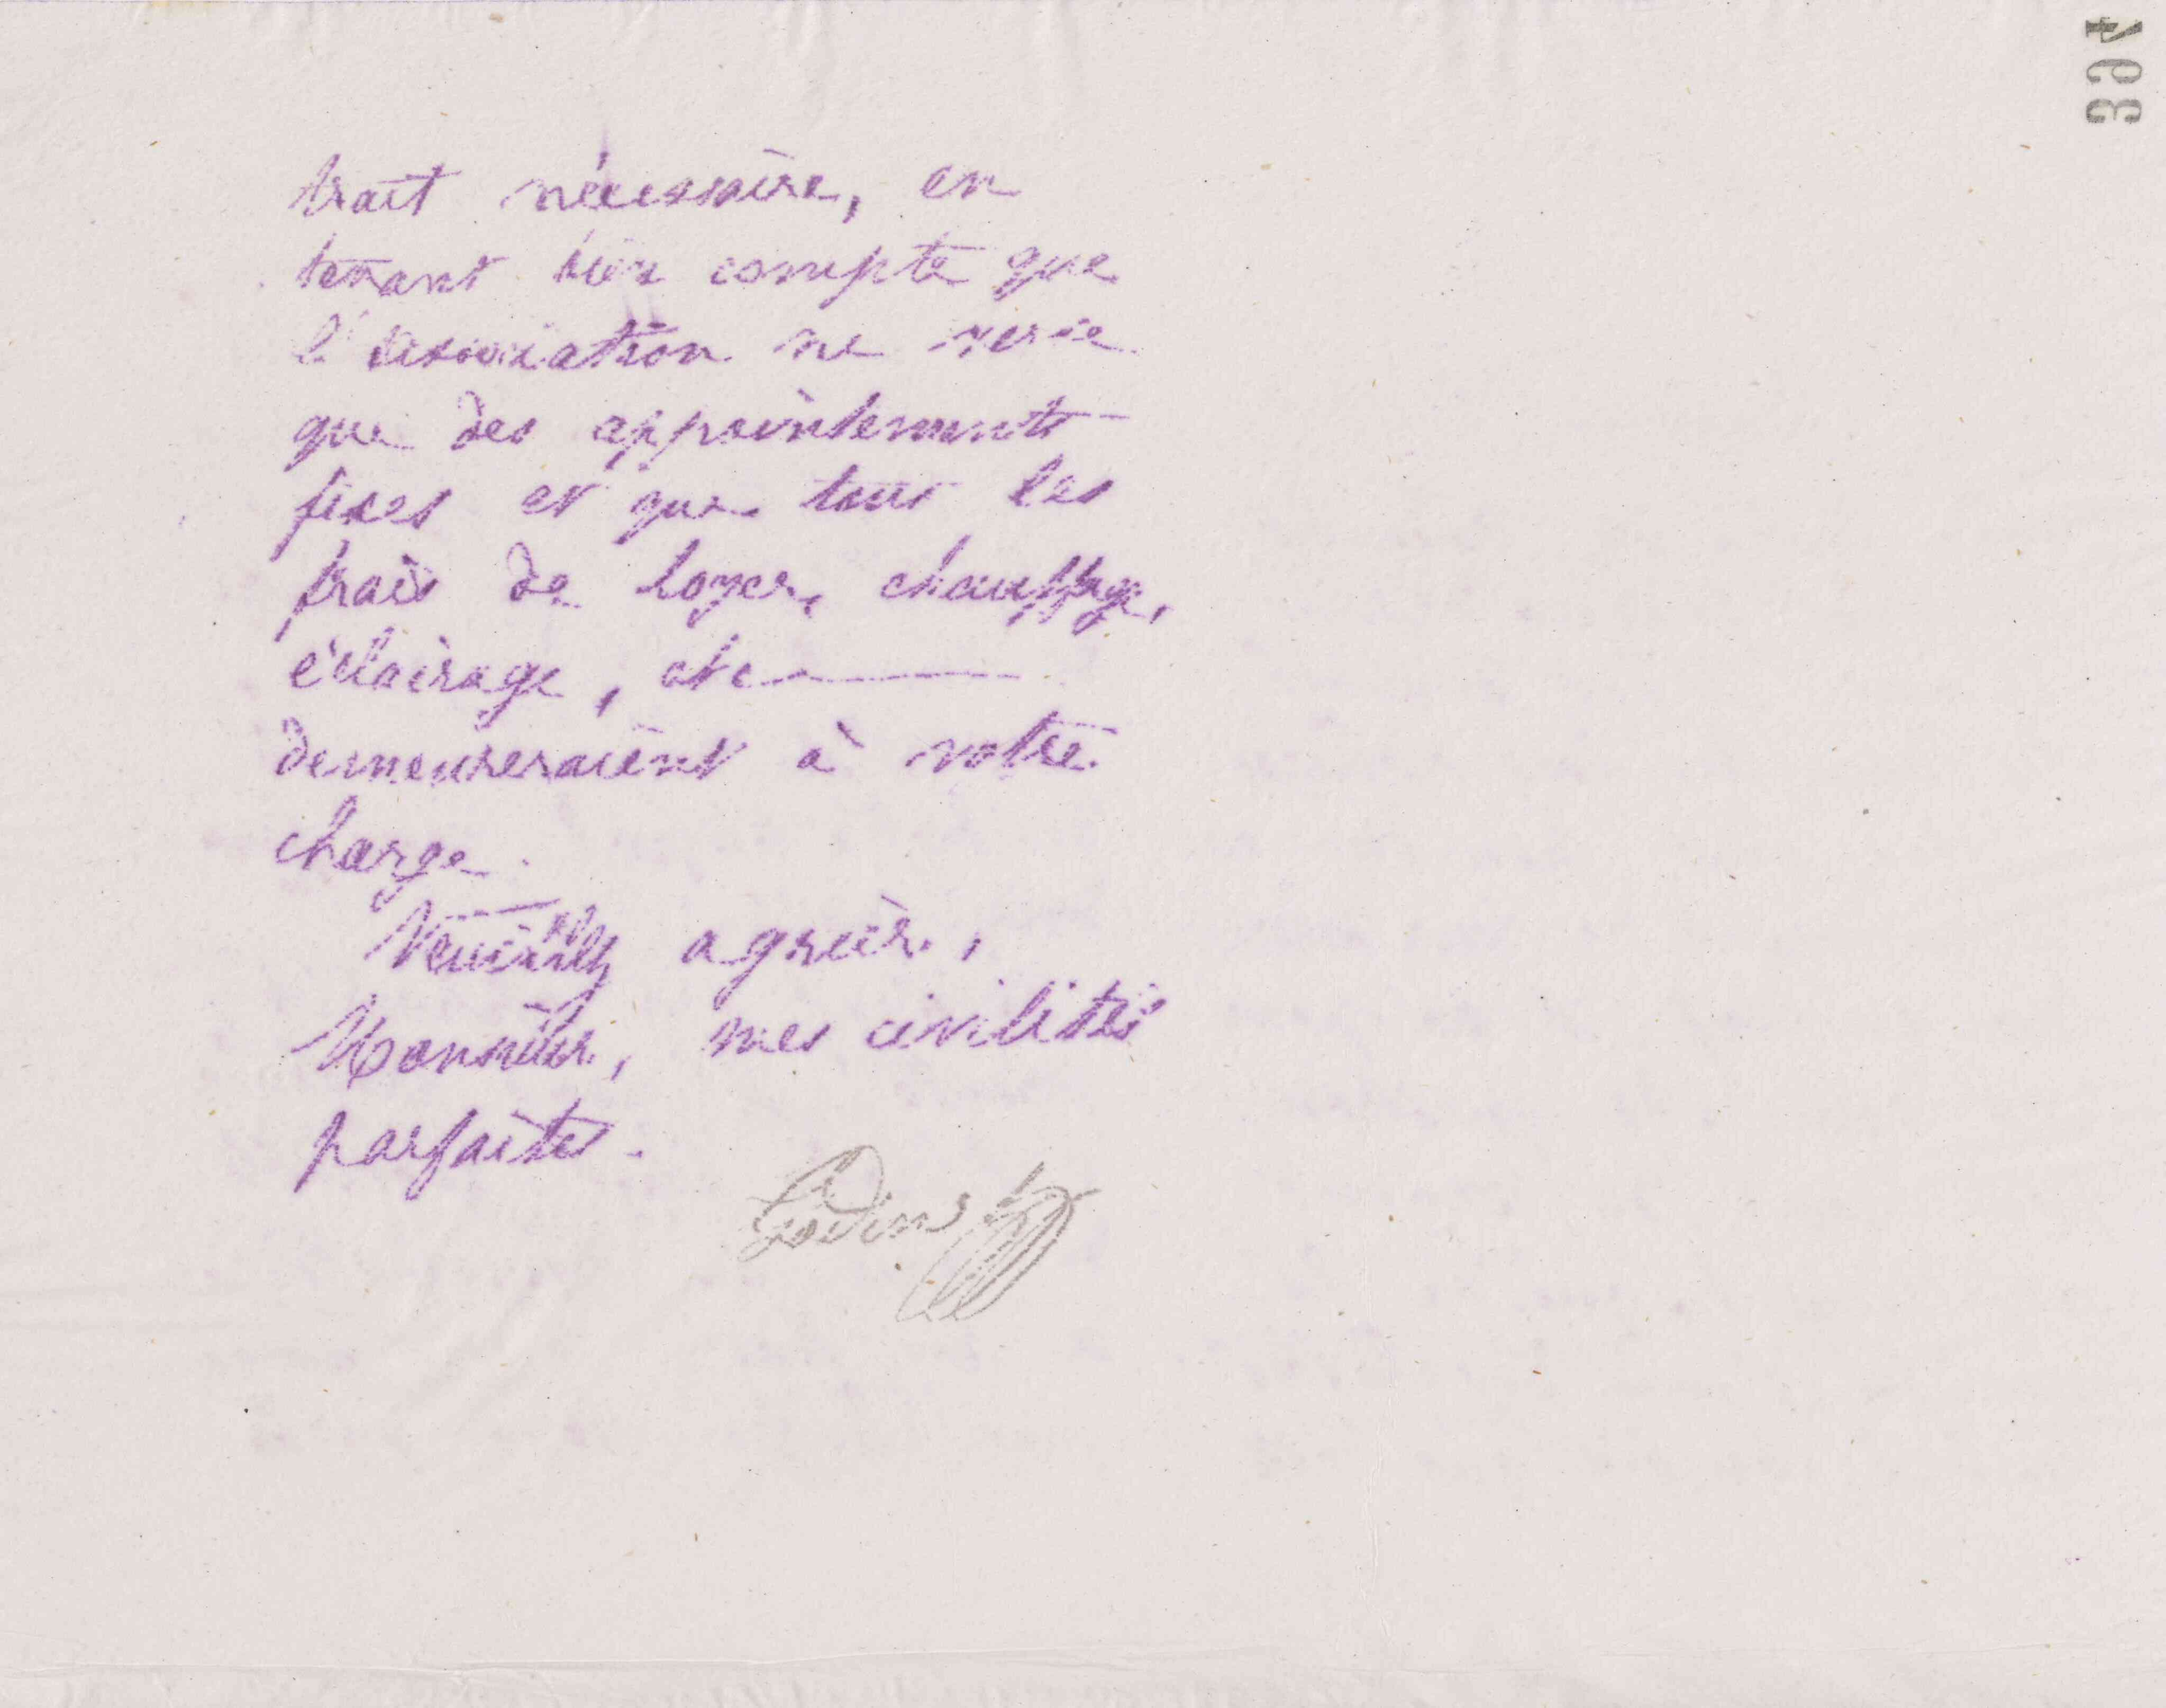 trait nécessaire, en
tenant bien compte que
l'association ne verse
que des appointements
fixes et que tous les
frais de loyer, chauffage,
éclairage, etc
demeureraient à votre
charge.
Veuillez agréer,
Monsieur, mes civilités
parfaites.
Godin